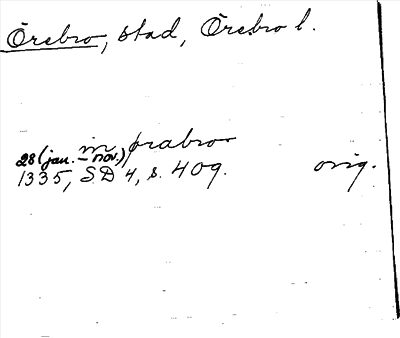 Örebro, stad, Örebro l.
in ørabroo
28 (jan. – nov.)
1335, SD 4, s. 409. orig.